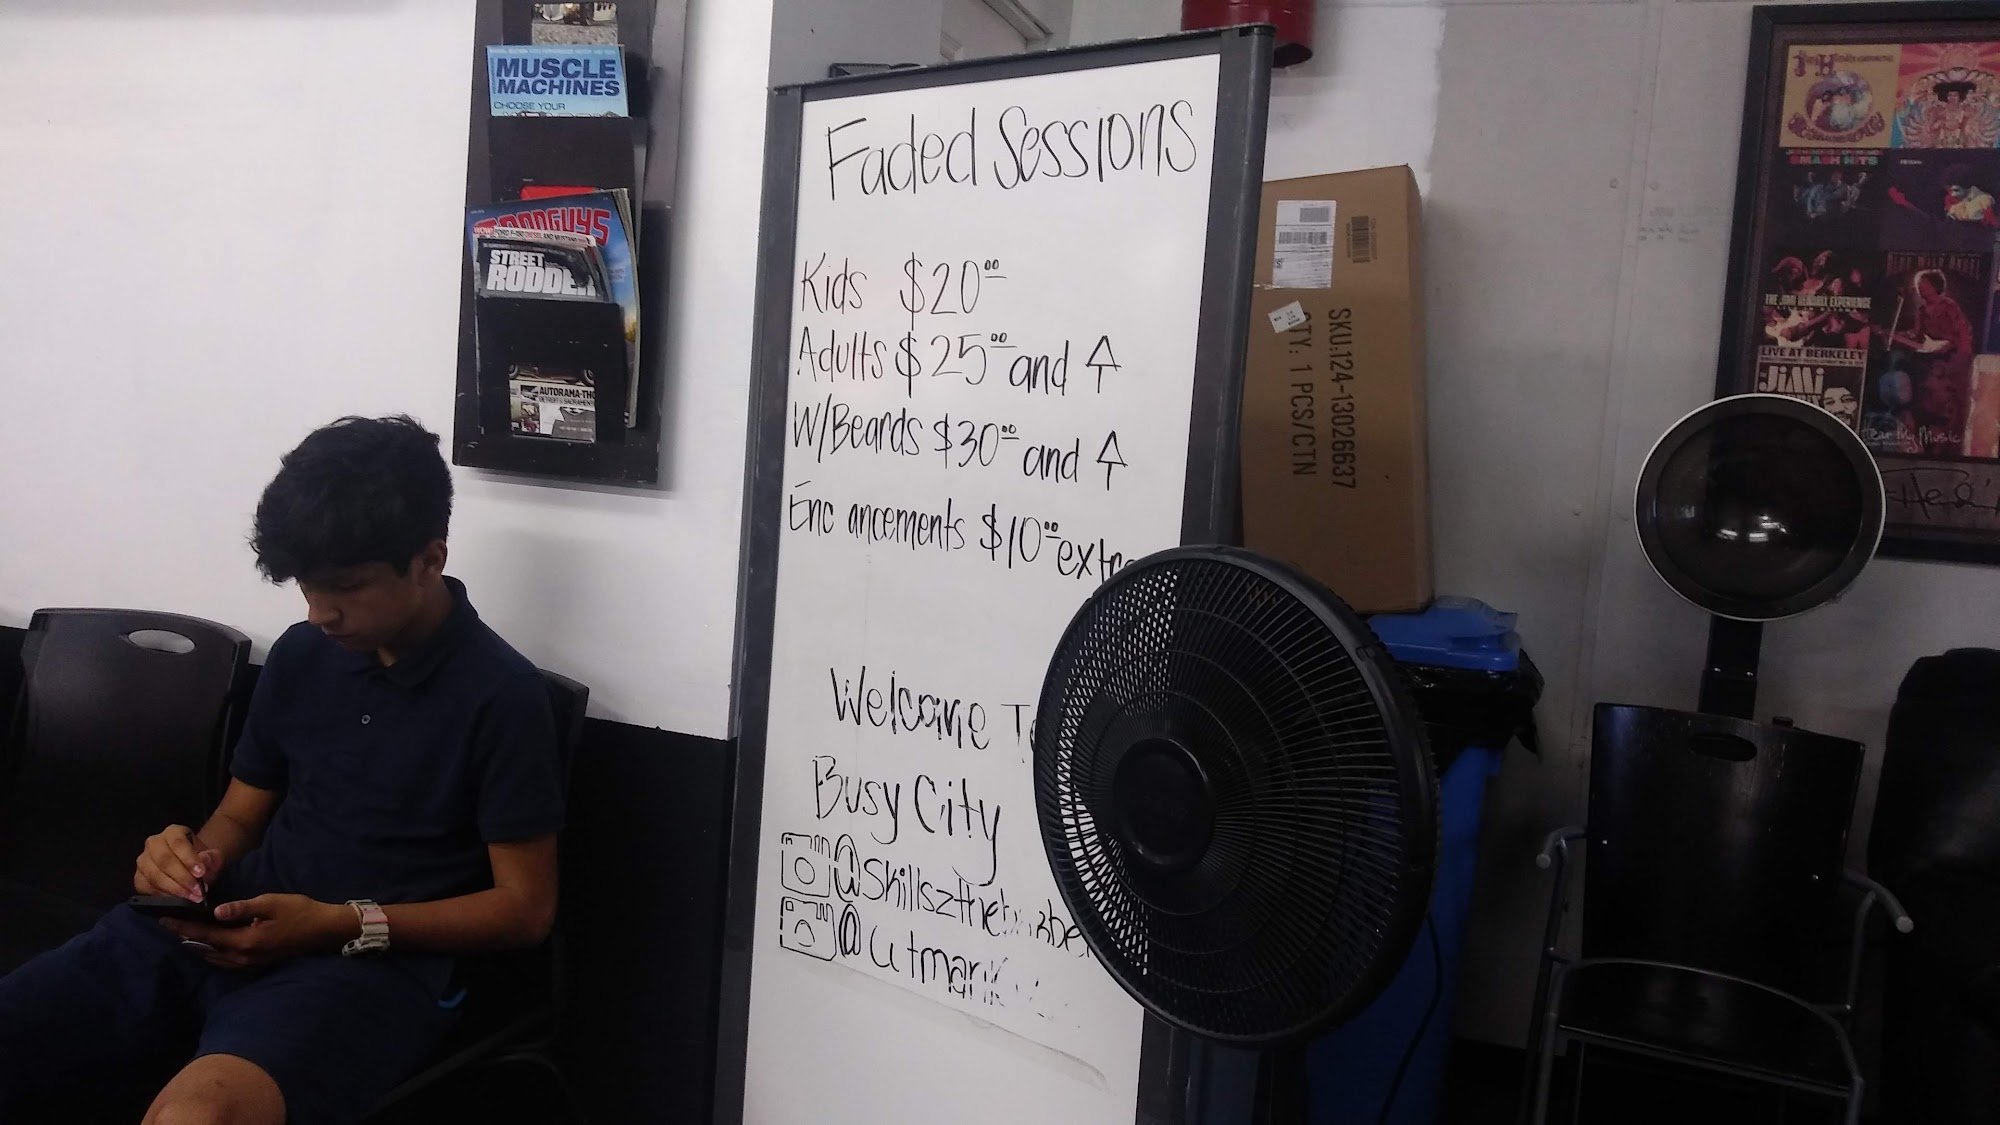 MUSCLE
MACHINES
CHOOSE YOUR
GOODGUYS
STREET
RODDER
AUTORAMA-THO
Faded Sessions
Kids $20.00
Adults $25.00 and ↑
W/Beards $30.00 and ↑
Enc ancements $10.00 extra
Welcome To
Busy City
@skillszthe
@cutmark
SKU:124-13026637
QTY: 1 PCS/CTN
SMASH HITS
THE JIMI HENDRIX EXPERIENCE
BLUE WILD ANGEL
LIVE AT BERKELEY
JiMi
Hear My Music
Hendrix